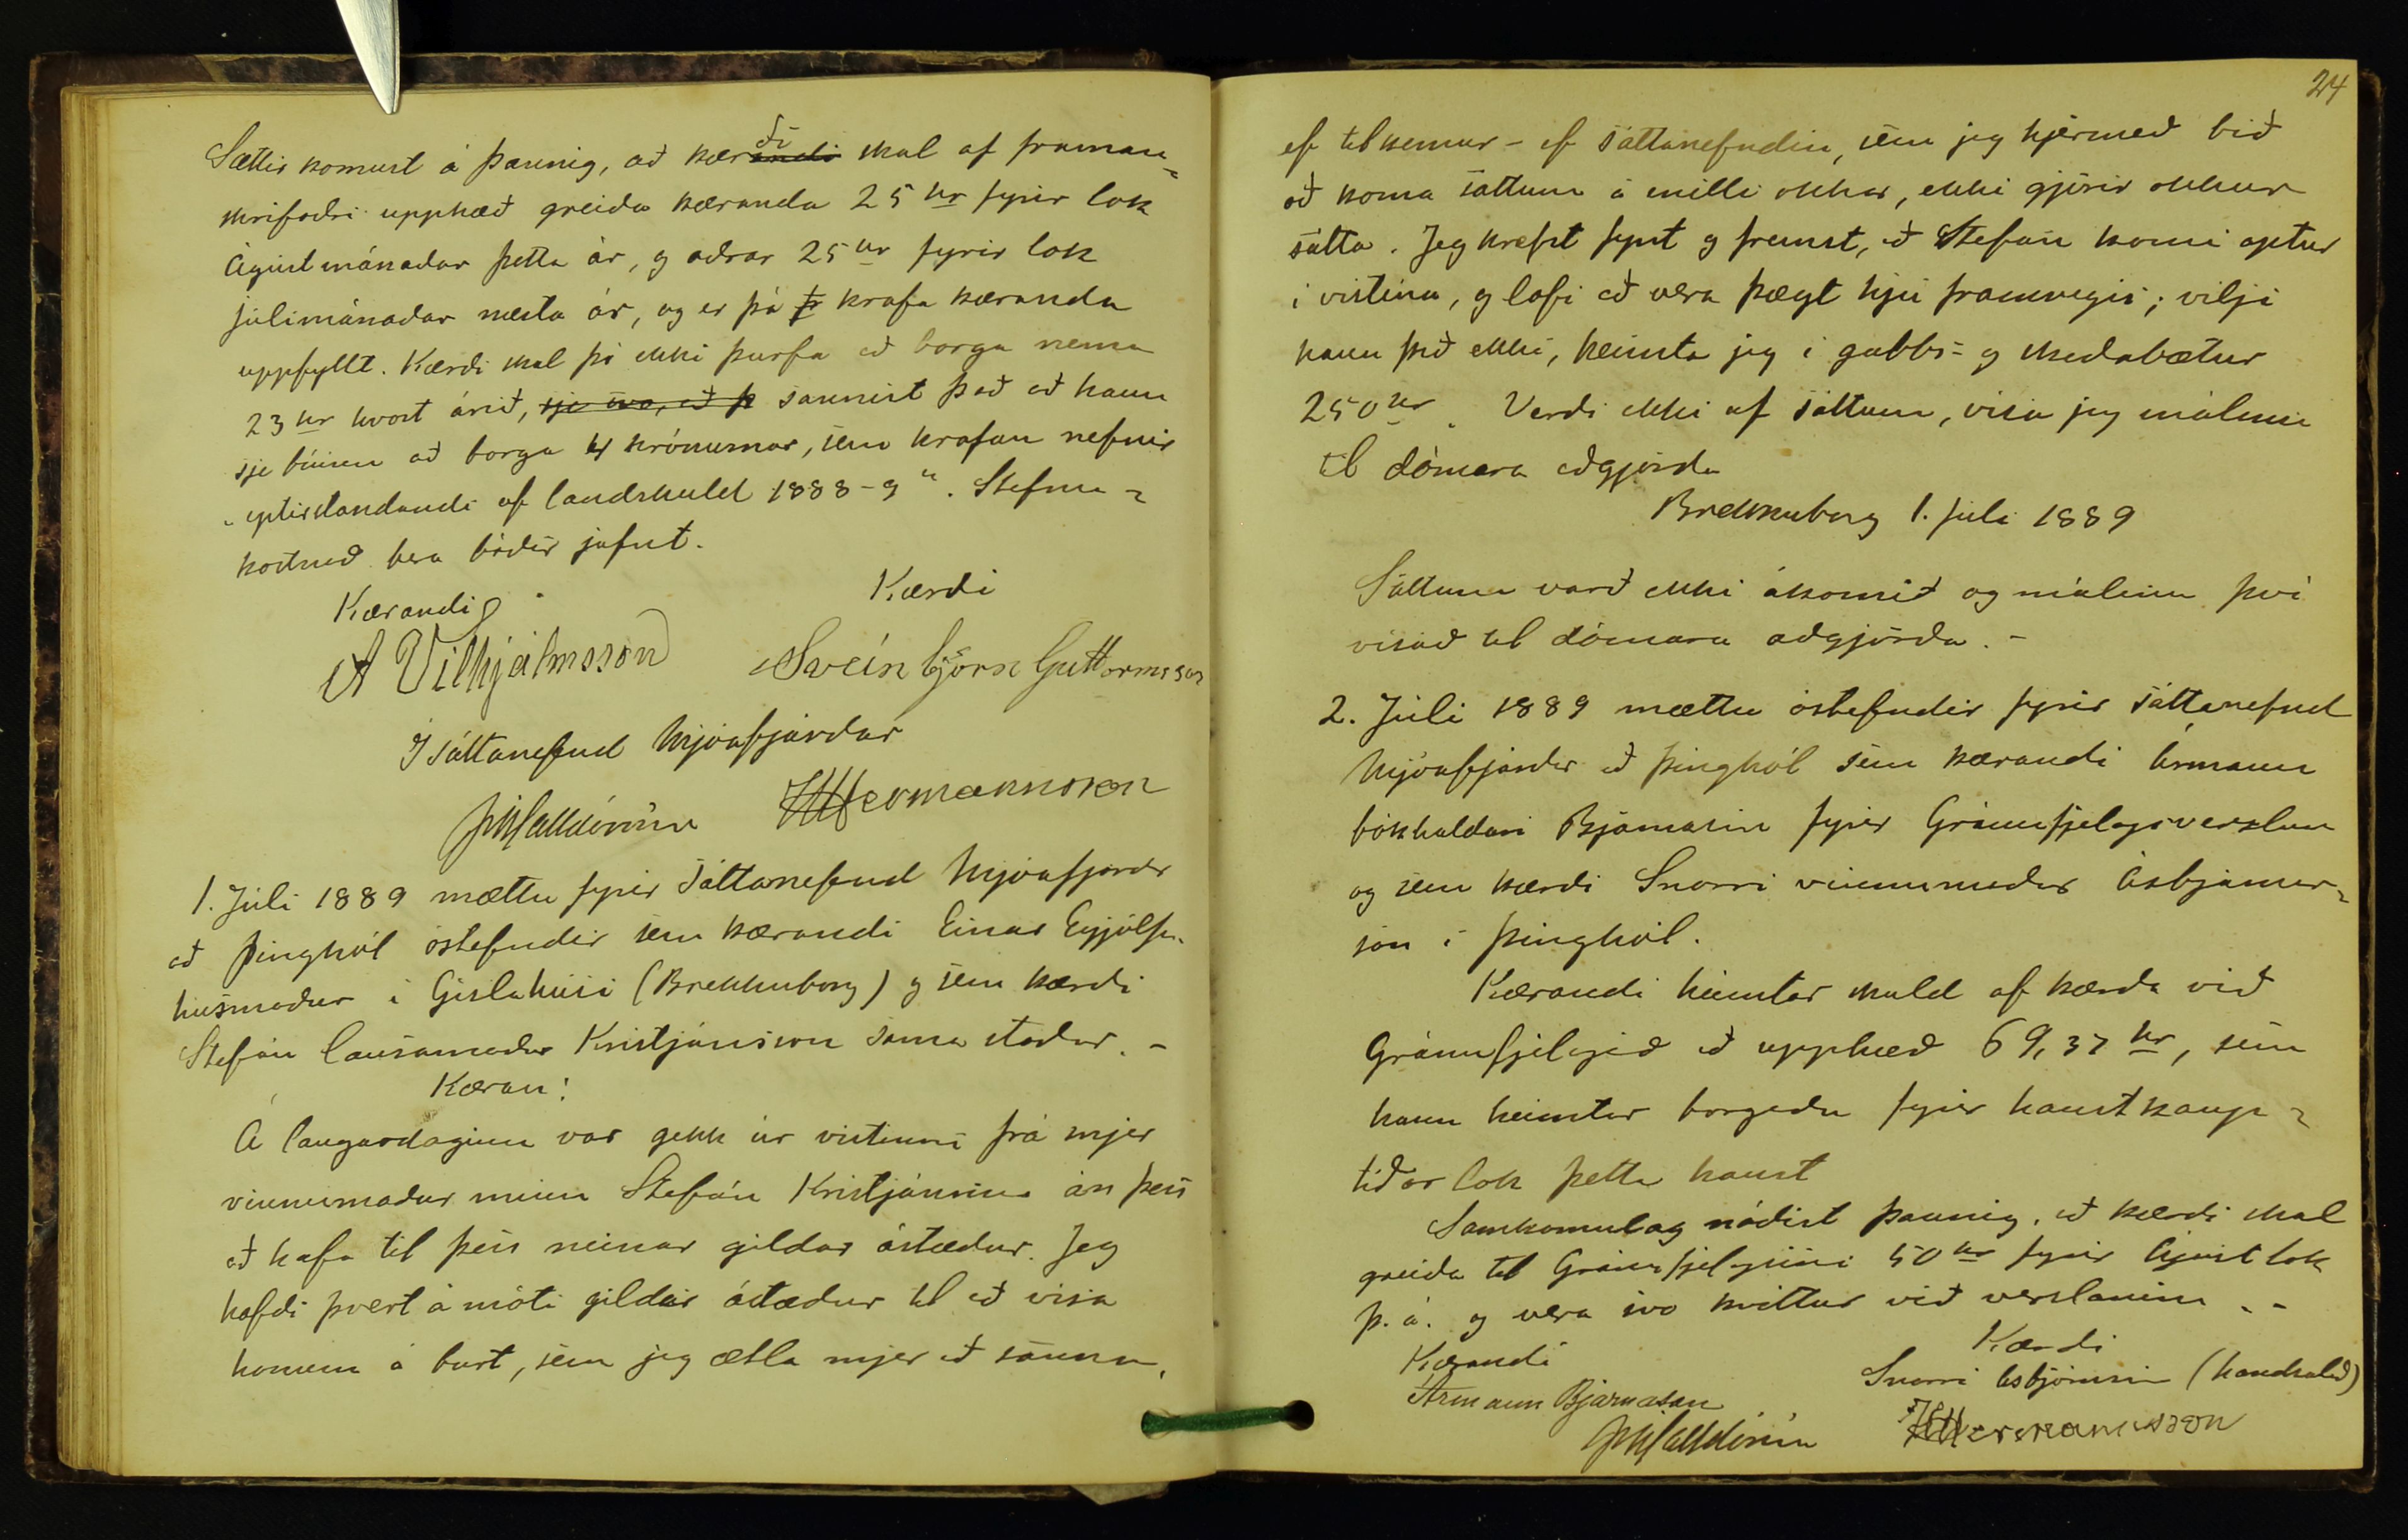 Sættir komust á þannig, að kærandi ði skal af framan-
skrifaðri upphæð greiða kæranda 25 kr fyrir lok
Ágústmánaðar þetta ár, og aðrar 25 kr fyrir lok
júlímánaðar næsta ár, og er þá þ krafa kæranda
uppfyllt. Kærði skal þó ekki þurfa að borga nema
23 kr hvort árið, sje svo, að þ sannist það að hann
sje búinn að borga 4 krónurnar, sem krafan nefnir
„eptirstandandi af landskuld 1888-9“. Stefnu-
kostnað bera báðir jafnt.
Kærandi
Kærði
A Vilhjálmsson
Sveinbjörn Guttormsson
Í sáttanefnd Mjóafjarðar
HHermannsson
1. Júlí 1889 mættu fyrir sáttanefnd Mjóafjarðr
að Þinghól óstefndir sem kærandi Einar Eyjólfss.
húsmaður í Gíslahúsi (Brekkuborg) og sem kærði
Stefán lausamaður Kristjánsson sama staðar. -
Kæran:
Á laugardaginn var gekk úr vistinni frá mjer
vinnumaður minn Stefán Kristjánsson án þess
að hafa til þess neinar gildar ástæður. Jeg
hafði þvert á móti gildar ástæður til að vísa
honum á burt, sem jeg ætla mjer að sanna,
24
ef til kemur - ef sáttanefndin, sem jeg hjermeð bið
að koma sáttum á milli okkar, ekki gjörir okkur
sátta. Jeg krefst fyrst og fremst, að Stefán komi aptur
í vistina, og lofi að vera þægt hjú framvegis; vilji
hann það ekki, heimta jeg í gabbs- og skaðabætur
250 kr. Verði ekki af sáttum, vísa jeg málinu
til dómara aðgjörða
Brekkuborg 1. júlí 1889
Sáttum varð ekki ákomið og málinu því
vísað til dómara aðgjörða. -
2. Júlí 1889 mættu óstefndir fyrir sáttanefnd
Mjóafjarðar að Þinghól sem kærandi Ármann
bókhaldari Bjarnason fyrir Gránufjelagsverzlun
og sem kærði Snorri vinnumaður Ásbjarnar-
son í Þinghól.
Kærandi heimtar skuld af kærða við
Gránufjelagið að upphæð 69,37 kr, sem
hann heimtar borgaða fyrir haustkaup-
tíðar lok þetta haust
Samkomulag náðist þannig, að kærði skal
greiða til Gránufjelagsins 50 kr fyrir Ágúst lok
þ. á. og vera svo kvittur við verslanina. -
Kærandi
Kærði
Ármann Bjarnason
Snorri Ásbjörnsson (handsalað)
HHermannsson